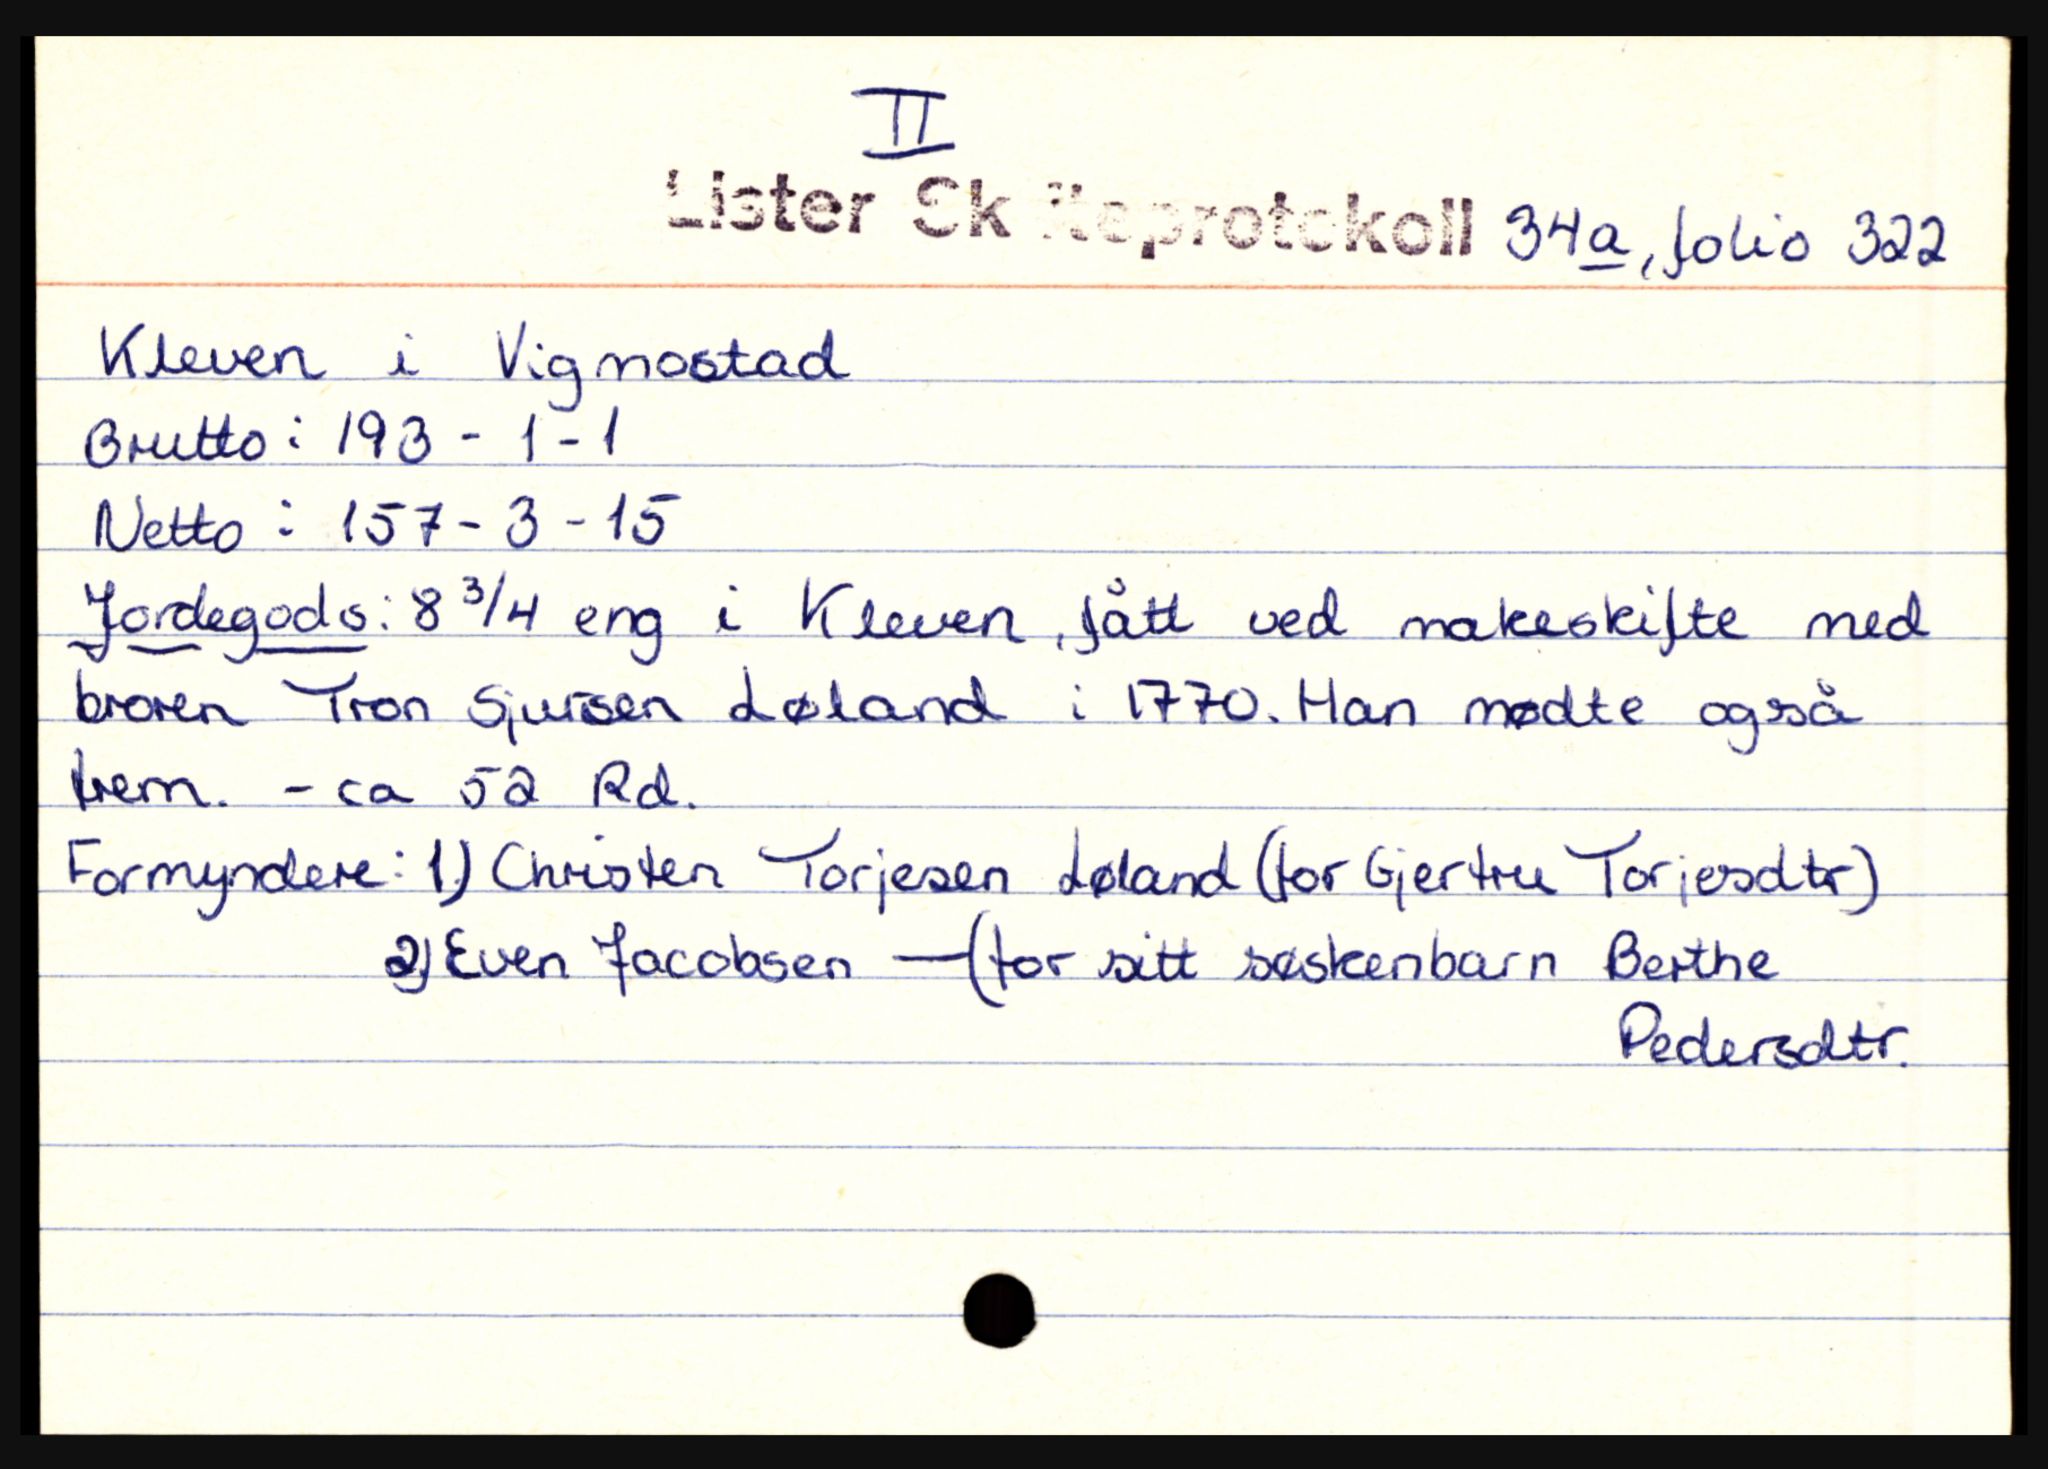 II
Lister Skifteprotokoll 34a, folio 322
Kleven i Vigmostad
Brutto: 193 - 1 - 1
Netto: 157 - 3 - 15
Jordegods: 8 3/4 eng i Kleven, fått ved makeskifte med
broren Tron Sjursen Løland i 1770. Han mødte også
frem. - ca 52 Rd.
Formyndere: 1.) Christen Torjesen Løland (for Gjertru Torjesdtr)
2) Even Jacobsen — (for sitt søskenbarn Berthe
Pedersdtr.